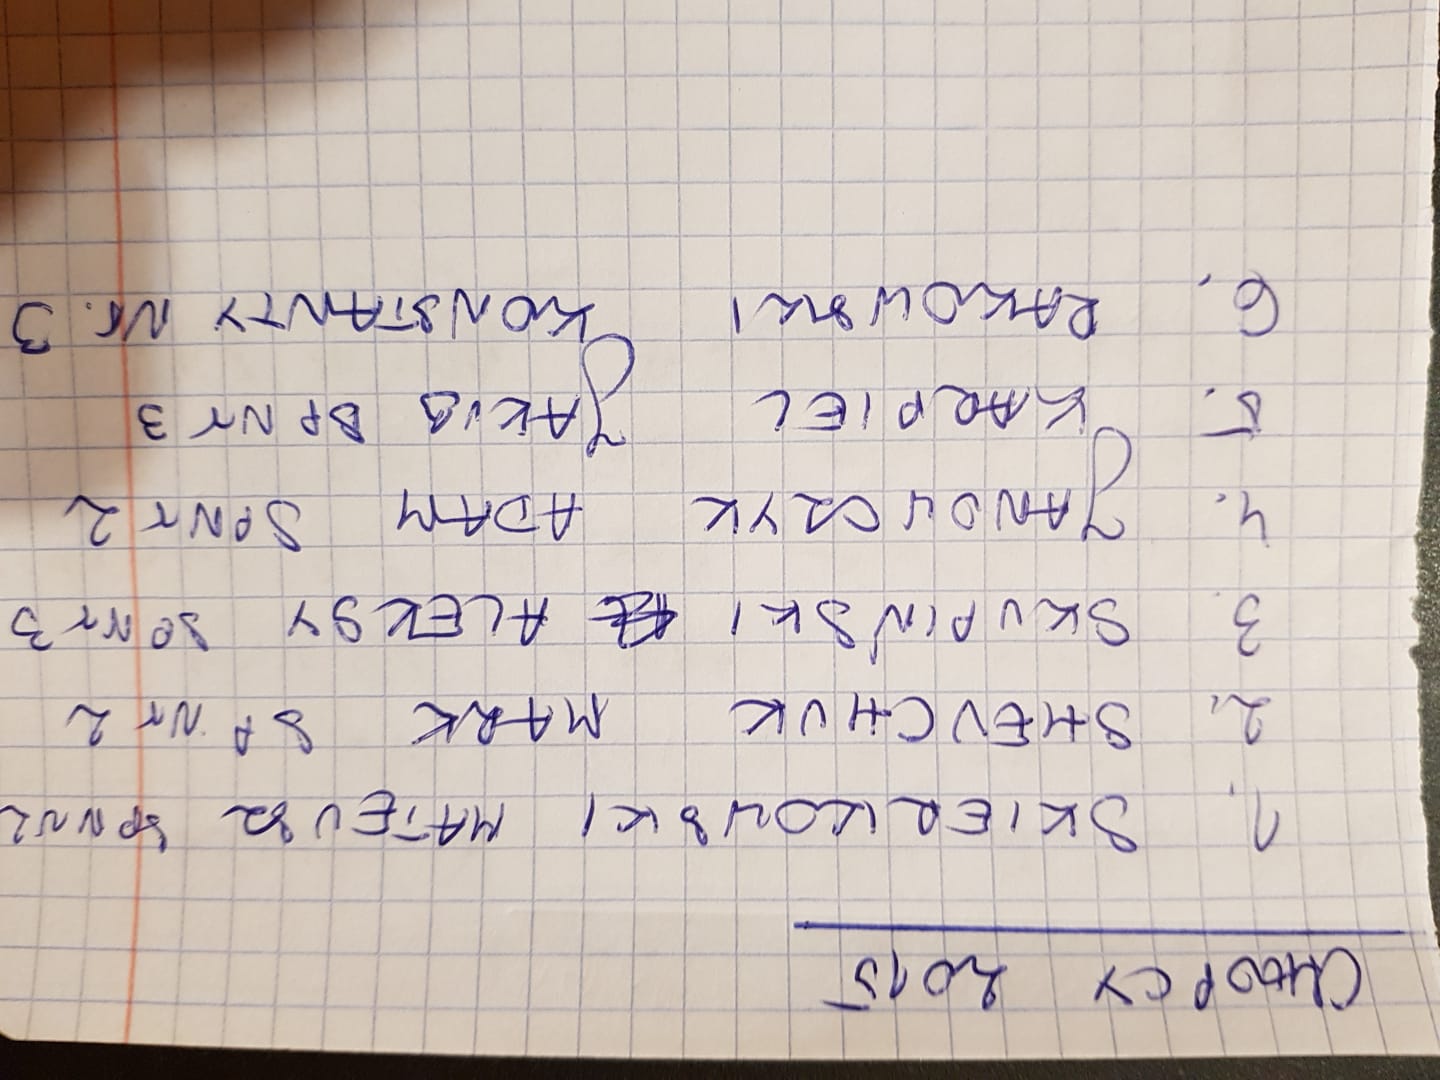 CHŁOPCY 2015
1. SKIERKOWSKI MATEUSZ SPNr 2
2. SHEVCHUK MARK SP Nr 2
3. SKUPIŃSKI ALEKSY SP Nr 3
4. JANOWCZYK ADAM SPNr 2
5. KARPIEL JAKUB SPNr 3
6. RAKOWSKI KONSTANTY Nr. 3